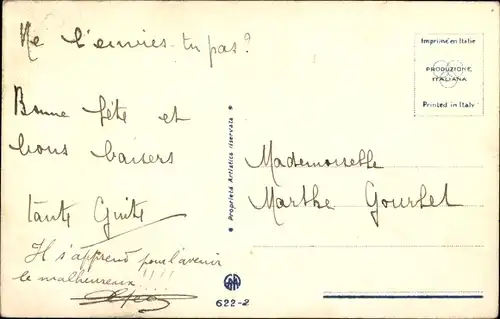 Ne l'envies-tu pas?
Bonne fête et
bons baisers
tante Guite
Il s'apprend pour l'avenir
le malheureux!!!!
Imprimé en Italie
PRODUZIONE
ITALIANA
Printed in Italy
Proprietà Artistica riservata
Mademoiselle
Marthe Gourlet
622-2